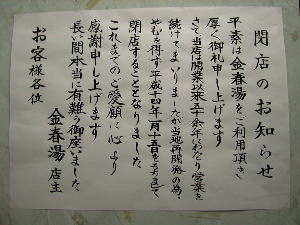 閉店のお知らせ
平素は金春湯をご利用頂き
厚く御礼申し上げます
さて当店は開業以来五十余年にわたり営業を
続けてまいりましたが当地再開発の為、
やむを得ず平成十四年 月十五日をもちまして
閉店することとなりました
これまでのご愛顧に心より
感謝申し上げます
長い間本当に有難う御座いました
金春湯 店主
お客様各位